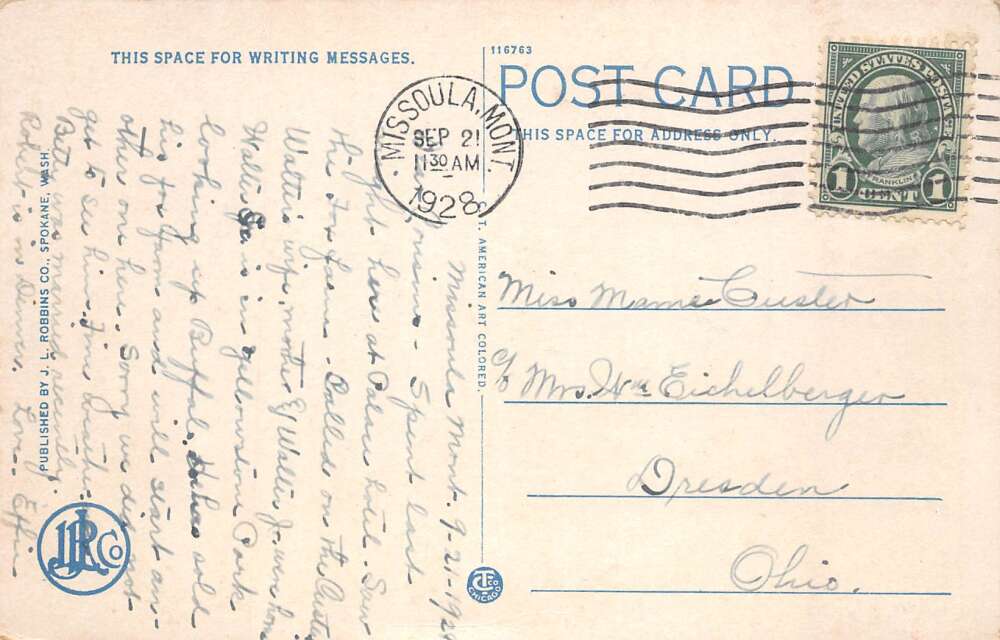 THIS SPACE FOR WRITING MESSAGES.
116763
POST CARD
THIS SPACE FOR ADDRESS ONLY.
MISSOULA, MONT.
SEP 21
11 30 AM
1928
UNITED STATES POSTAGE
FRANKLIN
1 CENT 1
Miss Mame Custer
c/o Mrs. Wm Eichelberger
Dresden
Ohio.
Missoula Mont. 9-21-1928
Spent last
night here at Palace hotel. Saw
the Fox farm. Called on the
Walter's wife, mother & Walter Jr. were home
Walter is in Yellowstone Park
looking up Buffalo. sold
his fox farm and will start an-
other one here. Sorry we did not
get to see him. Fine weather
Betty was married recently.
Robert is in Denver. Love. Effie
PUBLISHED BY J. L. ROBBINS CO., SPOKANE, WASH.
JLR Co
C. T. AMERICAN ART COLORED.
CT CO CHICAGO